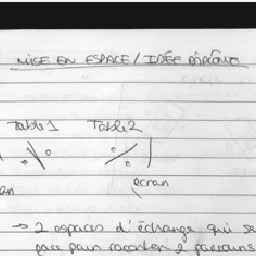 MISE EN ESPACE / IDÉE
Table 1 Table 2
écran
→ 2 espaces d'échange qui se
pour raconter 2 parcours